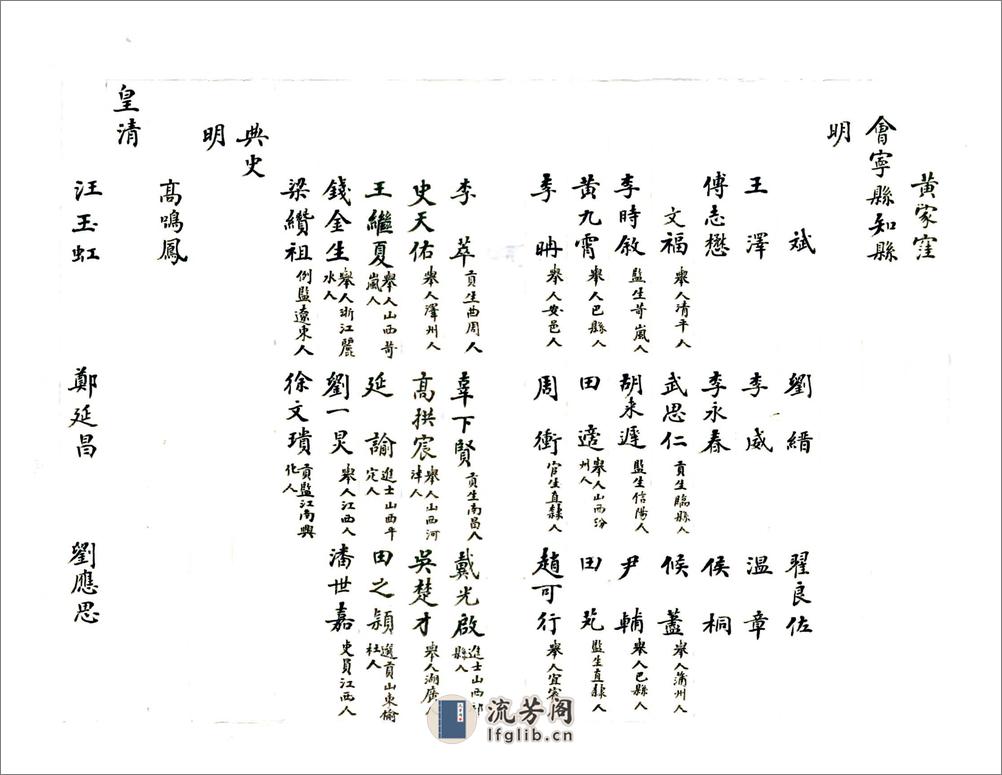 黃家窪
會寧縣知縣
明
斌 劉縉 翟良佐
王澤 李威 溫章
傅志懋 李永春 侯桐
文福 舉人清平人 武思仁 貢生臨縣人 候藎 舉人蒲州人
李時敘 監生苛嵐人 胡來遲 監生信陽人 尹輔 舉人巴縣人
黃九霄 舉人巴縣人 田適 舉人山西汾州人 田芃 監生直隸人
季冉 舉人安邑人 周衝 官生直隸人 趙可行 舉人宜賓
李萃 貢生曲周人 辜下賢 貢生南昌人 戴光啟 進士山西祁縣人
史天佑 舉人澤州人 高拱宸 舉人山西河津人 吳楚才 舉人湖廣人
王繼夏 舉人山西苛嵐人 延諭 進士山西平定人 田之頴 選貢山東榆社人
錢金生 舉人浙江麗水人 劉一炅 舉人江西人 潘世嘉 吏員江西人
梁纘祖 例監遼東人 徐文璝 貢監江南興化人
典史
明
高鳴鳳
皇清
汪玉虹 鄭延昌 劉應思
流芳阁
lfglib.cn